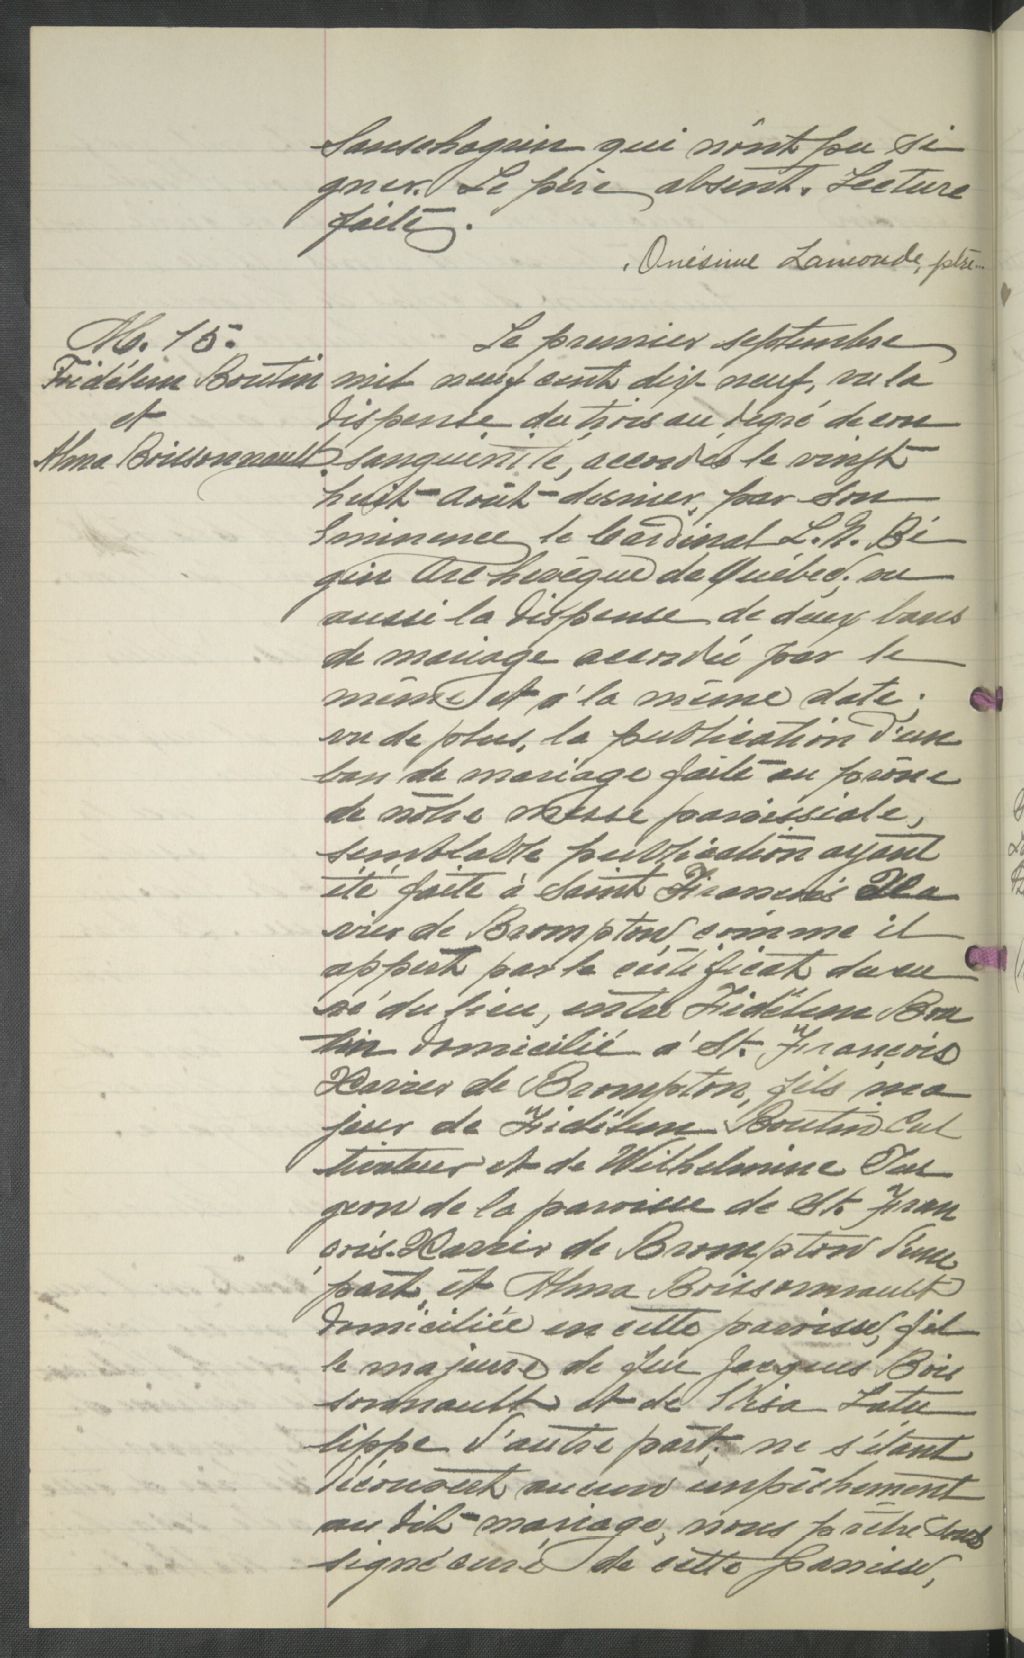 Sanschagrin qui n'ont pu si
gner. Le père absent. Lecture
faite.
Onésime Lamonde, ptre
M. 15.
Fridélem Boutin
et
Alma Boissonnault
Le premier septembre
mil neuf cent dix neuf, vu la
dispense du trois au degré de con
sanguinité, accordée le vingt
huit Août dernier, par Son
Eminence le Cardinal L. N. Bé
gin Archevêque de Québec; vu
aussi la dispense de deux bans
de mariage accordée par le
même et à la même date;
vu de plus, la publication d'un
ban de mariage faite au prône
de nôtre messe paroissiale,
semblable publication ayant
été faite à Saint François Xa
vier de Brompton, comme il
appert par le certificat du cu
ré du lieu, entre Fridélem Bou
tin domicilié à St. François
Xavier de Brompton, fils ma
jeur de Fridélem Boutin Cul
tivateur et de Wilhelmine Tur
geon de la paroisse de St. Fran
çois. Xavier de Brompton d'une
part, et Alma Boissonnault
domiciliée en cette paroisse, fil
le majeure de feu Jacques Bois
sonnault et de Elisa Latu
lippe d'autre part; ne s'étant
découvert aucun empêchement
au dit mariage, nous prêtre sous
signé curé de cette paroisse,